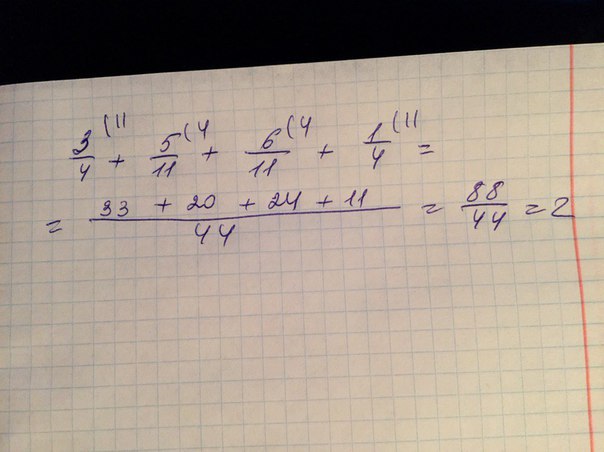 3/4 (11 + 5/11 (4 + 6/11 (4 + 1/4 (11 =
= 33 + 20 + 24 + 11 / 44 = 88/44 = 2